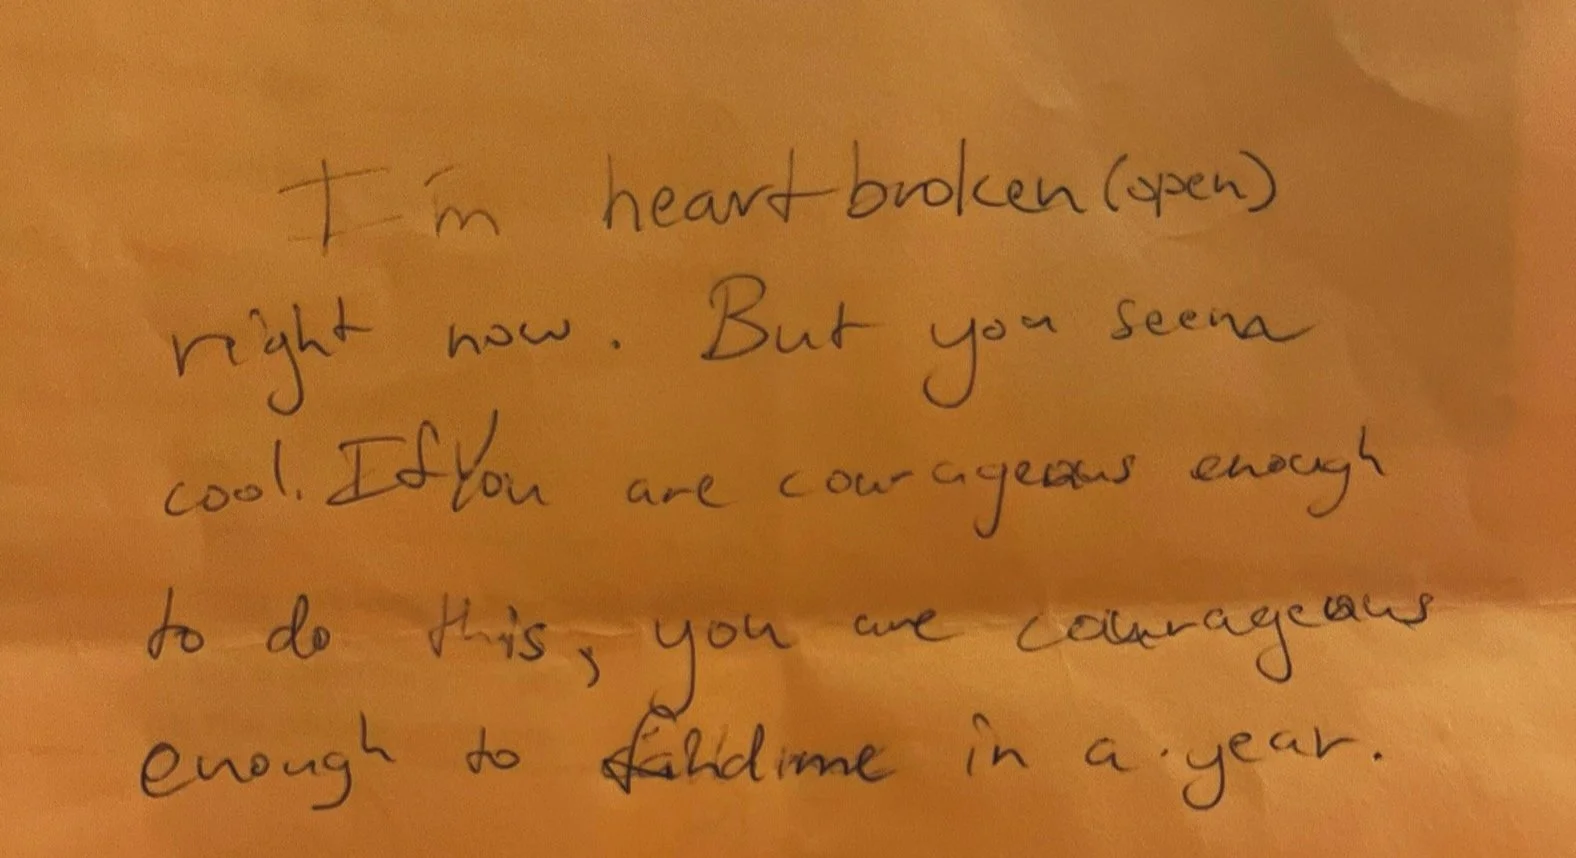 I'm heartbroken (open)
right now. But you seem
cool. If You are courageous enough
to do this, you are courageous
enough to find me in a year.